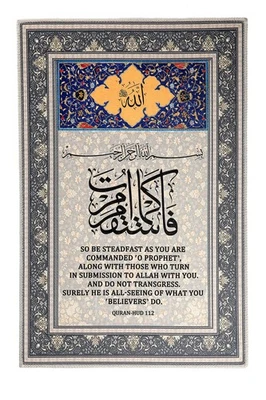 الله
بسم الله الرحمن الرحيم
فاستقم كما أمرت
SO BE STEADFAST AS YOU ARE
COMMANDED 'O PROPHET',
ALONG WITH THOSE WHO TURN
IN SUBMISSION TO ALLAH WITH YOU.
AND DO NOT TRANSGRESS.
SURELY HE IS ALL-SEEING OF WHAT YOU
'BELIEVERS' DO.
QURAN-HUD 112